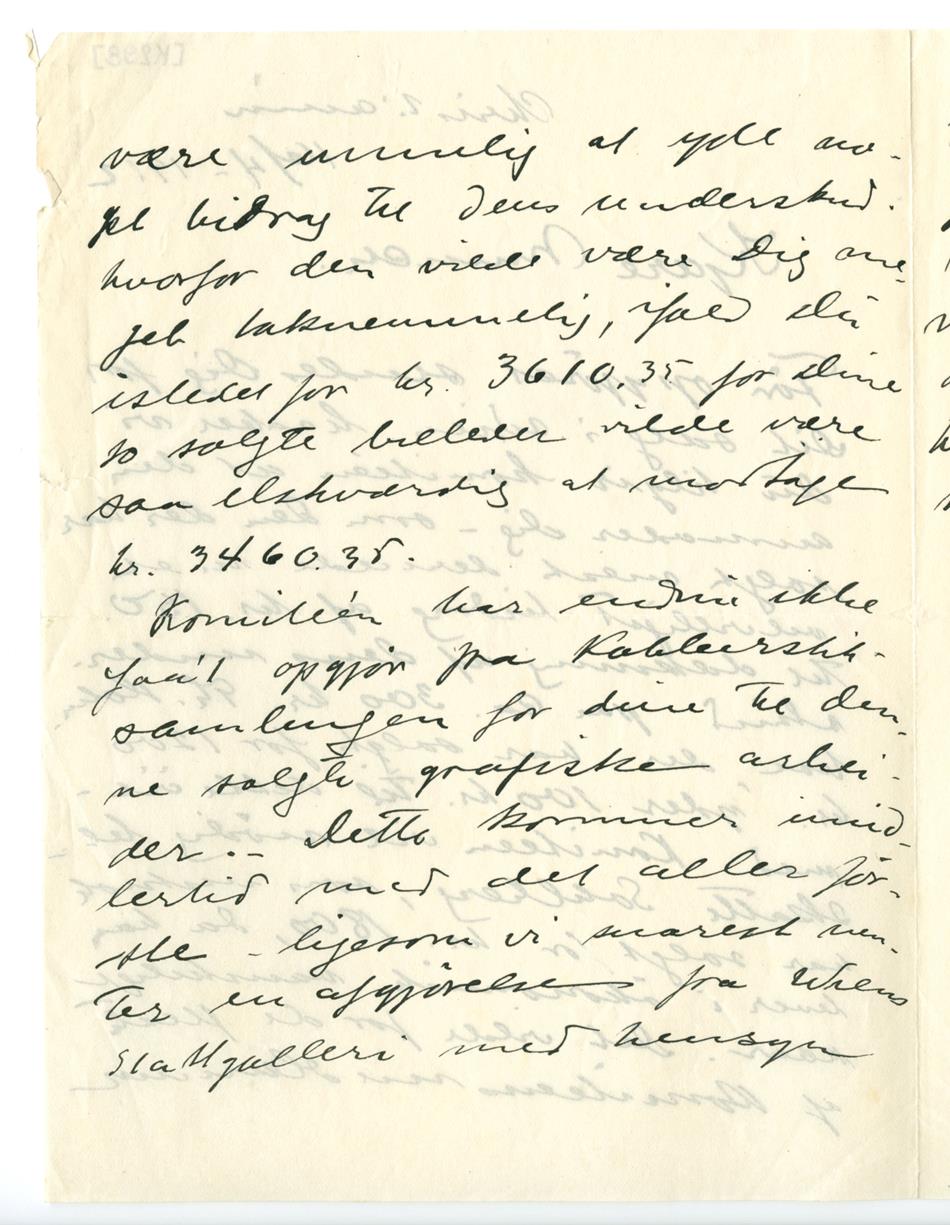 være umulig at yde no-
get bidrag til dens underskud.
hvorfor den vilde være Dig me-
get taknemmelig, ifald Du
istedet for kr. 3610.35 for Dine
so solgte billeder vilde være
saa elskværdig at modtage
kr. 3460.35.
Komiteén har endnu ikke
faa't opgjør fra Kobberstik-
samlingen for dine til den-
ne solgte grafiske arbei-
der. – Dette kommer imid-
lertid med det aller før-
ste – ligesom vi snarest ven-
ter en afgjørelse fra Wiens
Stattgalleri med hensyn